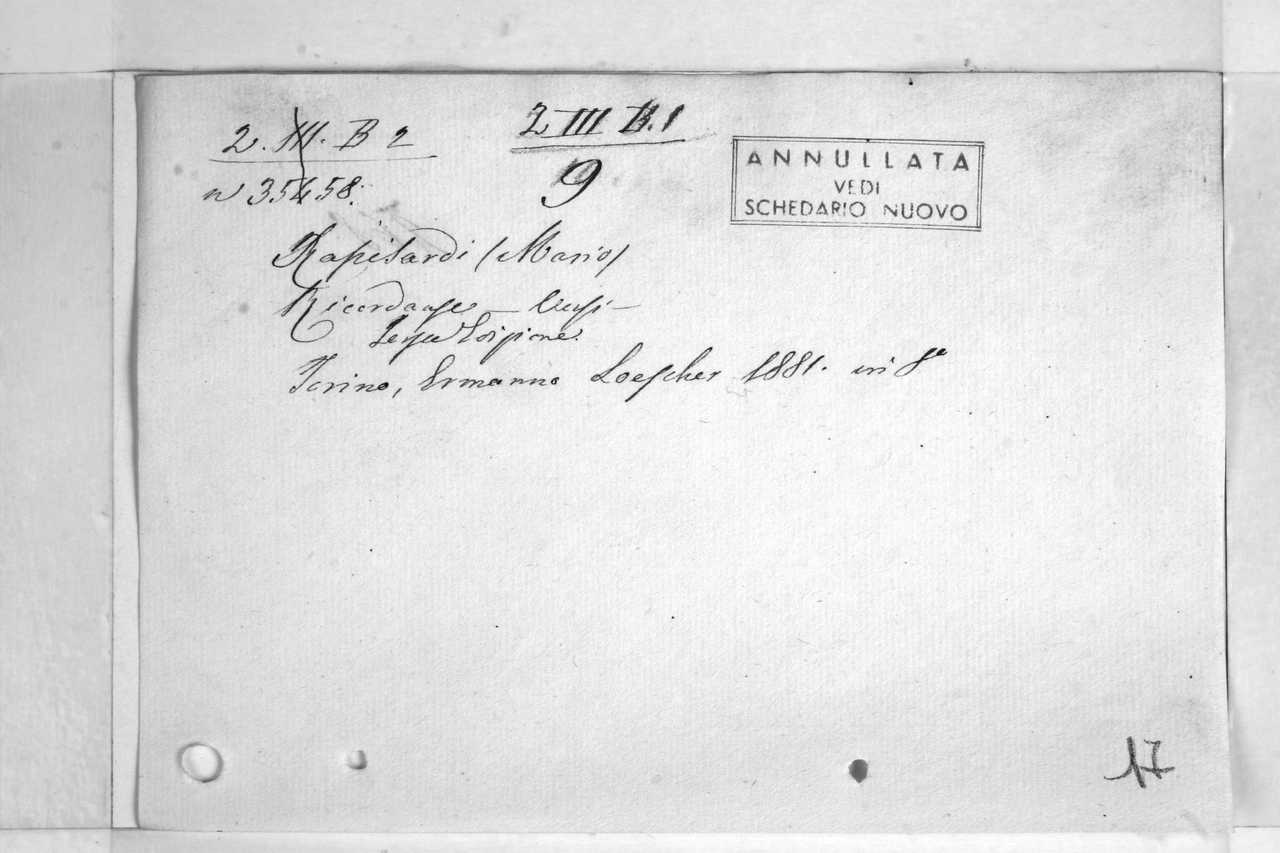 2. III. B 2
n 35458.
2 III B.1
9
ANNULLATA
VEDI
SCHEDARIO NUOVO
Rapisardi (Mario)
Ricordanze – Versi –
Terza Edizione.
Torino, Ermanno Loescher 1881. in 8º
17